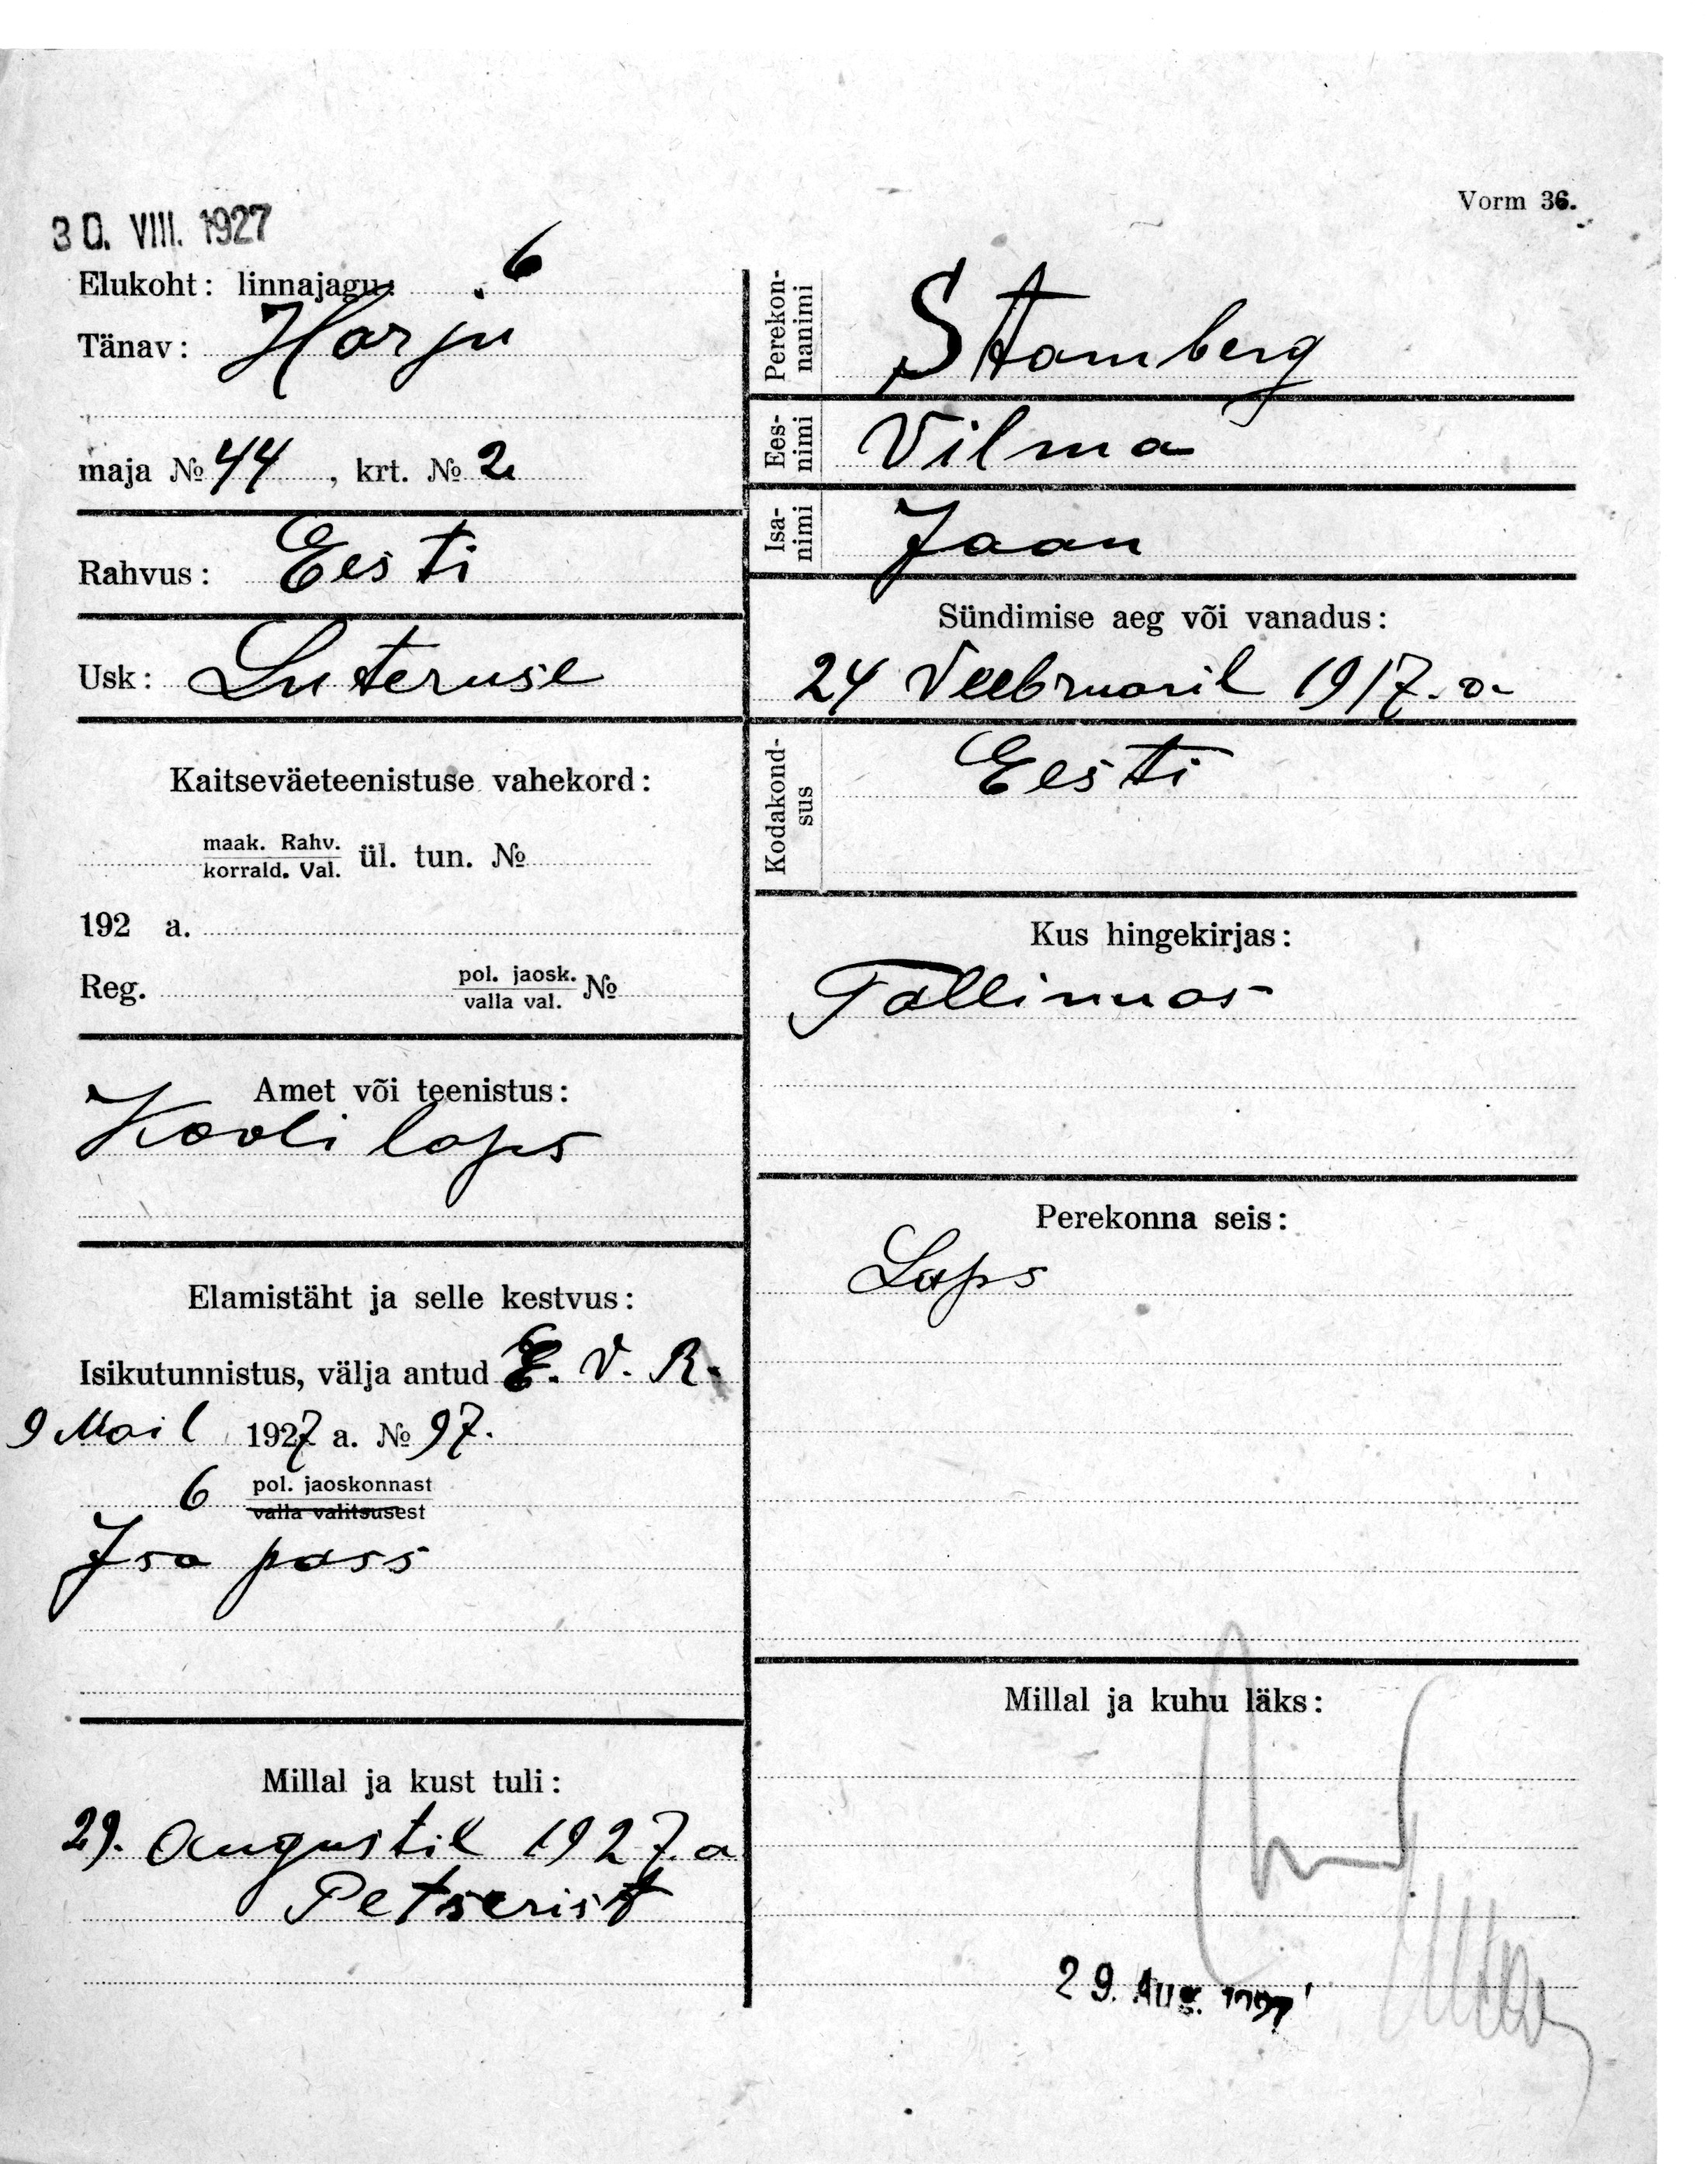 Vorm 36.
30. VIII. 1927
Elukoht: linnajagu: 6
Tänav: Harju
maja № 44, krt. № 2
Rahvus: Eesti
Usk: Luteruse
Kaitseväeteenistuse vahekord:
maak. Rahv.
korrald. Val. ül. tun. №
192 a.
Reg. pol. jaosk. №
valla val.
Amet või teenistus:
Kooli laps
Elamistäht ja selle kestvus:
Isikutunnistus, välja antud E. V. R.
9 Mail 1927 a. № 97.
6 pol. jaoskonnast
valla valitsusest
Isa pass
Millal ja kust tuli:
29. Augustil 1927. a
Petserist
Perekon-
nanimi
Stamberg
Ees-
nimi
Vilma
Isa-
nimi
Jaan
Sündimise aeg või vanadus:
24 Veebruaril 1917. a.
Kodakond-
sus
Eesti
Kus hingekirjas:
Tallinnas
Perekonna seis:
Laps
Millal ja kuhu läks:
29. Aug. 1927